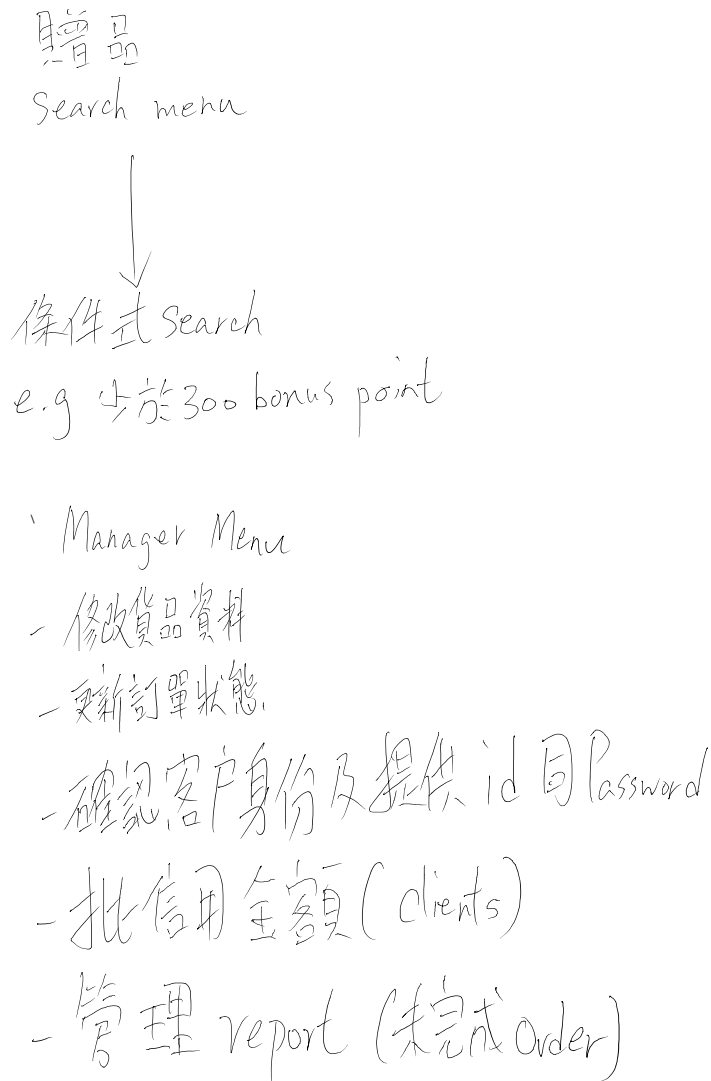 贈品
Search menu
條件式 Search
e.g 少於300 bonus point
Manager Menu
- 修改貨品資料
- 更新訂單狀態
- 確認客戶身份及提供 id 同 Password
- 批信用金額 (clients)
- 管理 report (未完成 Order)